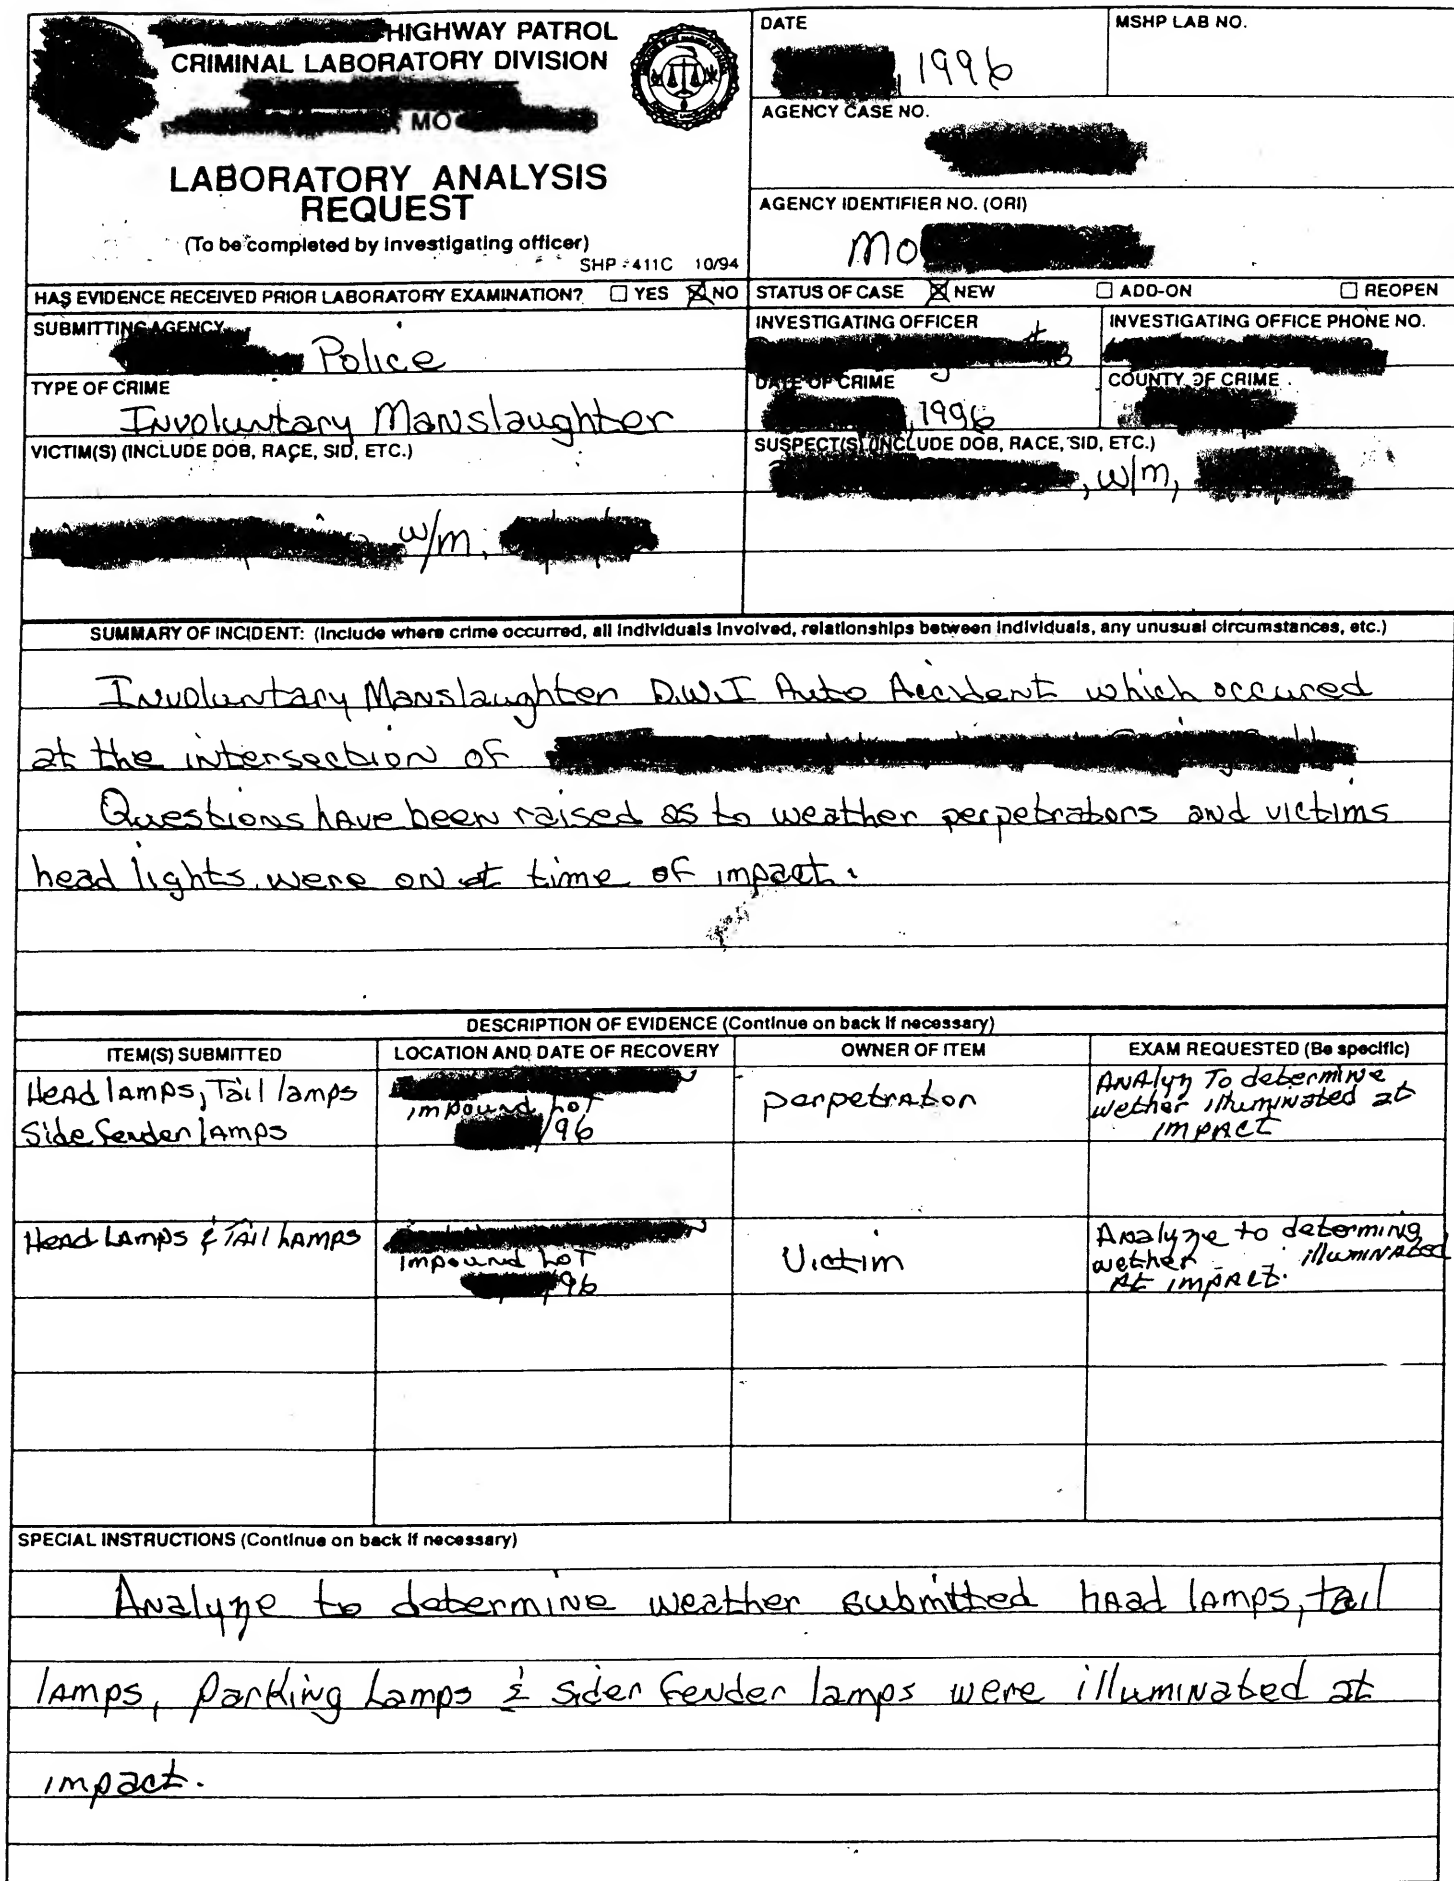 HIGHWAY PATROL
CRIMINAL LABORATORY DIVISION
MO
LABORATORY ANALYSIS
REQUEST
(To be completed by investigating officer)
SHP-411C 10/94
DATE
1996
MSHP LAB NO.
AGENCY CASE NO.
AGENCY IDENTIFIER NO. (ORI)
MO
HAS EVIDENCE RECEIVED PRIOR LABORATORY EXAMINATION? ☐ YES ☒ NO
STATUS OF CASE ☒ NEW ☐ ADD-ON ☐ REOPEN
SUBMITTING AGENCY
Police
INVESTIGATING OFFICER
INVESTIGATING OFFICE PHONE NO.
TYPE OF CRIME
Involuntary Manslaughter
DATE OF CRIME
, 1996
COUNTY OF CRIME
VICTIM(S) (INCLUDE DOB, RACE, SID, ETC.)
w/m,
SUSPECT(S) (INCLUDE DOB, RACE, SID, ETC.)
, w/m,
SUMMARY OF INCIDENT: (Include where crime occurred, all individuals involved, relationships between individuals, any unusual circumstances, etc.)
Involuntary Manslaughter D.W.I Auto Accident which occured
at the intersection of
Questions have been raised as to weather perpetrators and victims
head lights were on at time of impact.
DESCRIPTION OF EVIDENCE (Continue on back if necessary)
ITEM(S) SUBMITTED LOCATION AND DATE OF RECOVERY OWNER OF ITEM EXAM REQUESTED (Be specific)
Head lamps, Tail lamps
Side fender lamps
impound Lot
/96
perpetrator
Analyz To determine
wether illuminated at
impact
Head Lamps & Tail Lamps
Impound Lot
/96
Victim
Analyze to determing
wether illuminated
At impact.
SPECIAL INSTRUCTIONS (Continue on back if necessary)
Analyze to determine weather submitted head lamps, tail
lamps, parking Lamps & sider fender lamps were illuminated at
impact.